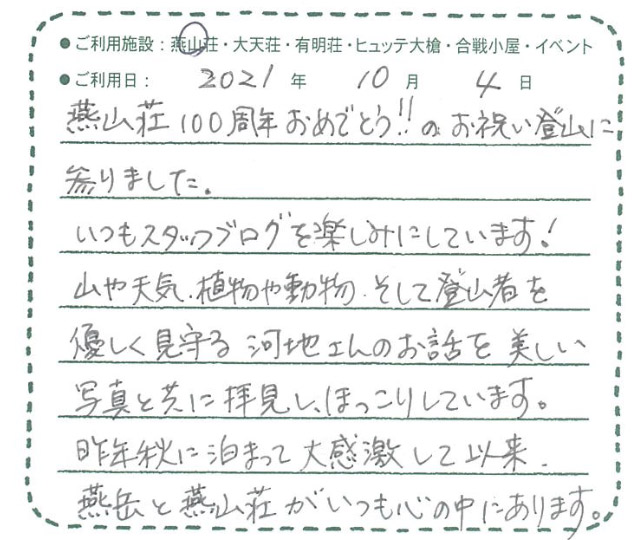 ●ご利用施設：燕山荘・大天荘・有明荘・ヒュッテ大槍・合戦小屋・イベント
●ご利用日： 2021 年 10 月 4 日
燕山荘100周年おめでとう!!のお祝い登山に
参りました。
いつもスタッフブログを楽しみにしています!
山や天気、植物や動物、そして登山者を
優しく見守る河地さんのお話を美しい
写真と共に拝見し、ほっこりしています。
昨年秋に泊まって大感激して以来、
燕岳と燕山荘がいつも心の中にあります。